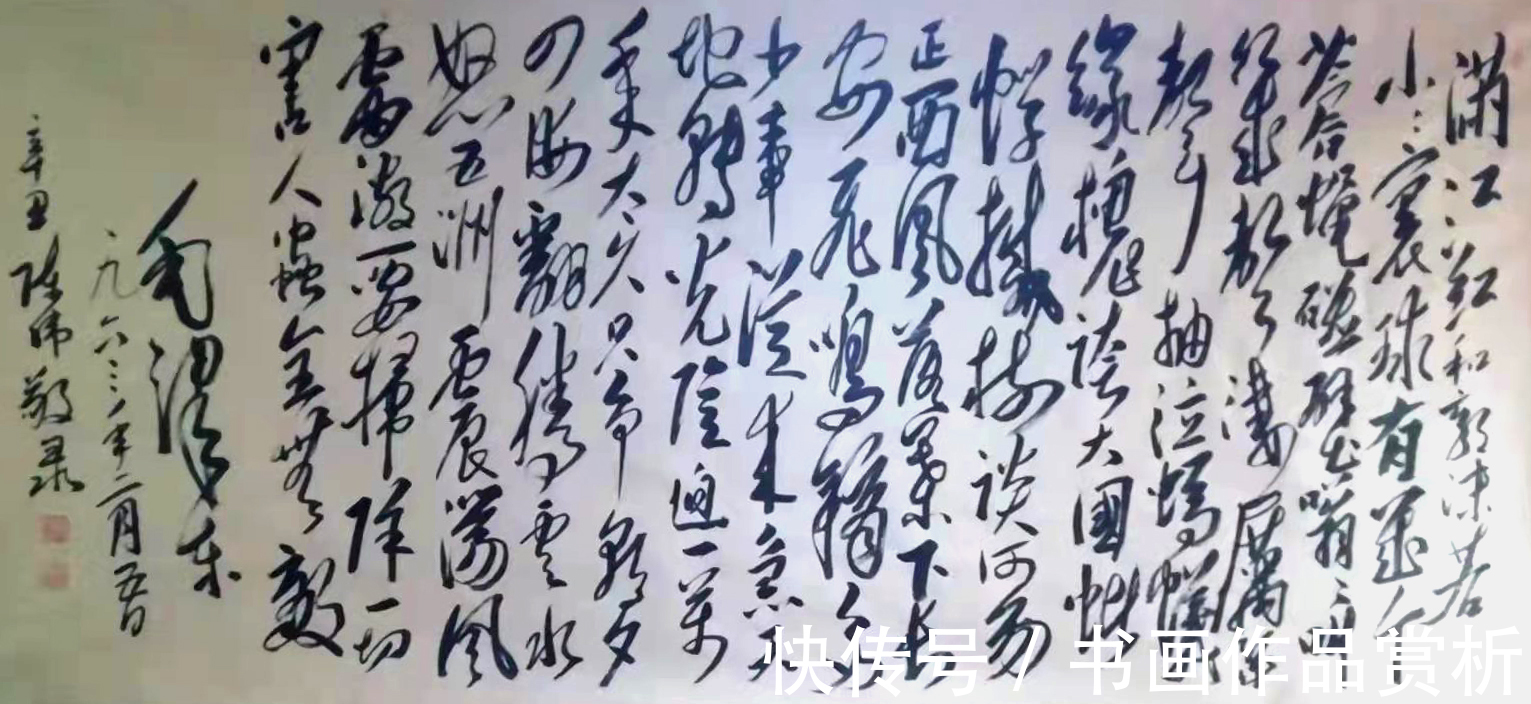 满江红和郭沫若
小小寰球有几个
苍蝇碰壁嗡嗡叫
几声凄厉几
声抽泣蚂蚁
缘槐夸大國蚍
蜉撼树谈何易
正西風落葉下长
安飛鳴镝多
少事從来急天
地轉光陰迫一万
年太久只争朝夕
四海翻腾雲水
怒五洲震荡風
雷激要掃除一切
害人虫全無敌
毛泽东
一九六三年二月五日
辛丑 陈伟敬录
快传号 / 书画作品赏析